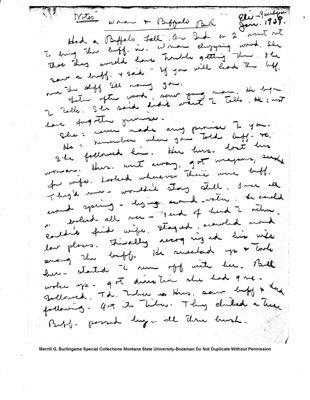 Notes
Woman & Buffalo Bull
Eli - Guardipee
June - 1939.
Had a Buffalo Fall. An Ind. or 2 went out
to bring the buff. in. Woman chopping wood. She
that they would have trouble getting them. She
saw a buff. & said - If you will lead the buff.
over the cliff I'll marry you.
Later after wood, saw young man. He began
to talk. She said didn't want to talk. He: not
have forgotten promise.
She: never made any promise to you.
He: remember when you told buff. etc.
She followed him. Her husb. lost his
woman. Husb. went away, got weapons, searched
for wife. Looked wherever there were buff.
They'd run - wouldn't stay still. Came all
around spring - lying around water. He could
looked all over - 1 end of herd to other.
couldn't find wife. Stayed, crawled around
low places. Finally recognized his wife
among the buff. He sneaked up & took
her - started to run off with her. Bull
woke up - got direction she had gone -
followed. Husb. saw buff & herd
following - Got to timber. They climbed a tree
Buff. passed by - all thru brush.
Merrill G. Burlingame Special Collections Montana State University-Bozeman Do Not Duplicate Without Permission